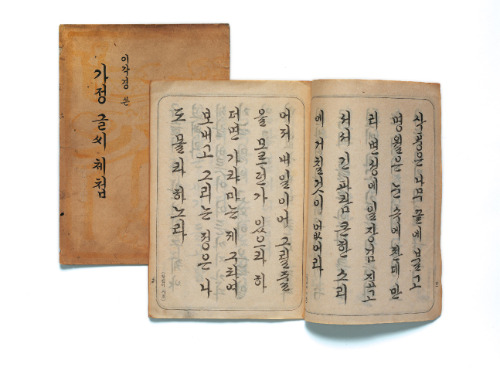 이각경 쓴
가정 글씨 체첩
삭풍은 나무 끝에 불고
명월은 눈 속에 찬데 만
리 변성에 일장검 짚고
서서 긴 파람 큰 한 소리
에 거칠 것이 없어라
어져 내 일이여 그릴 줄
을 모르던가 있으라 하
더면 가랴마는 제 구태여
보내고 그리는 정은 나
도 몰라 하노라